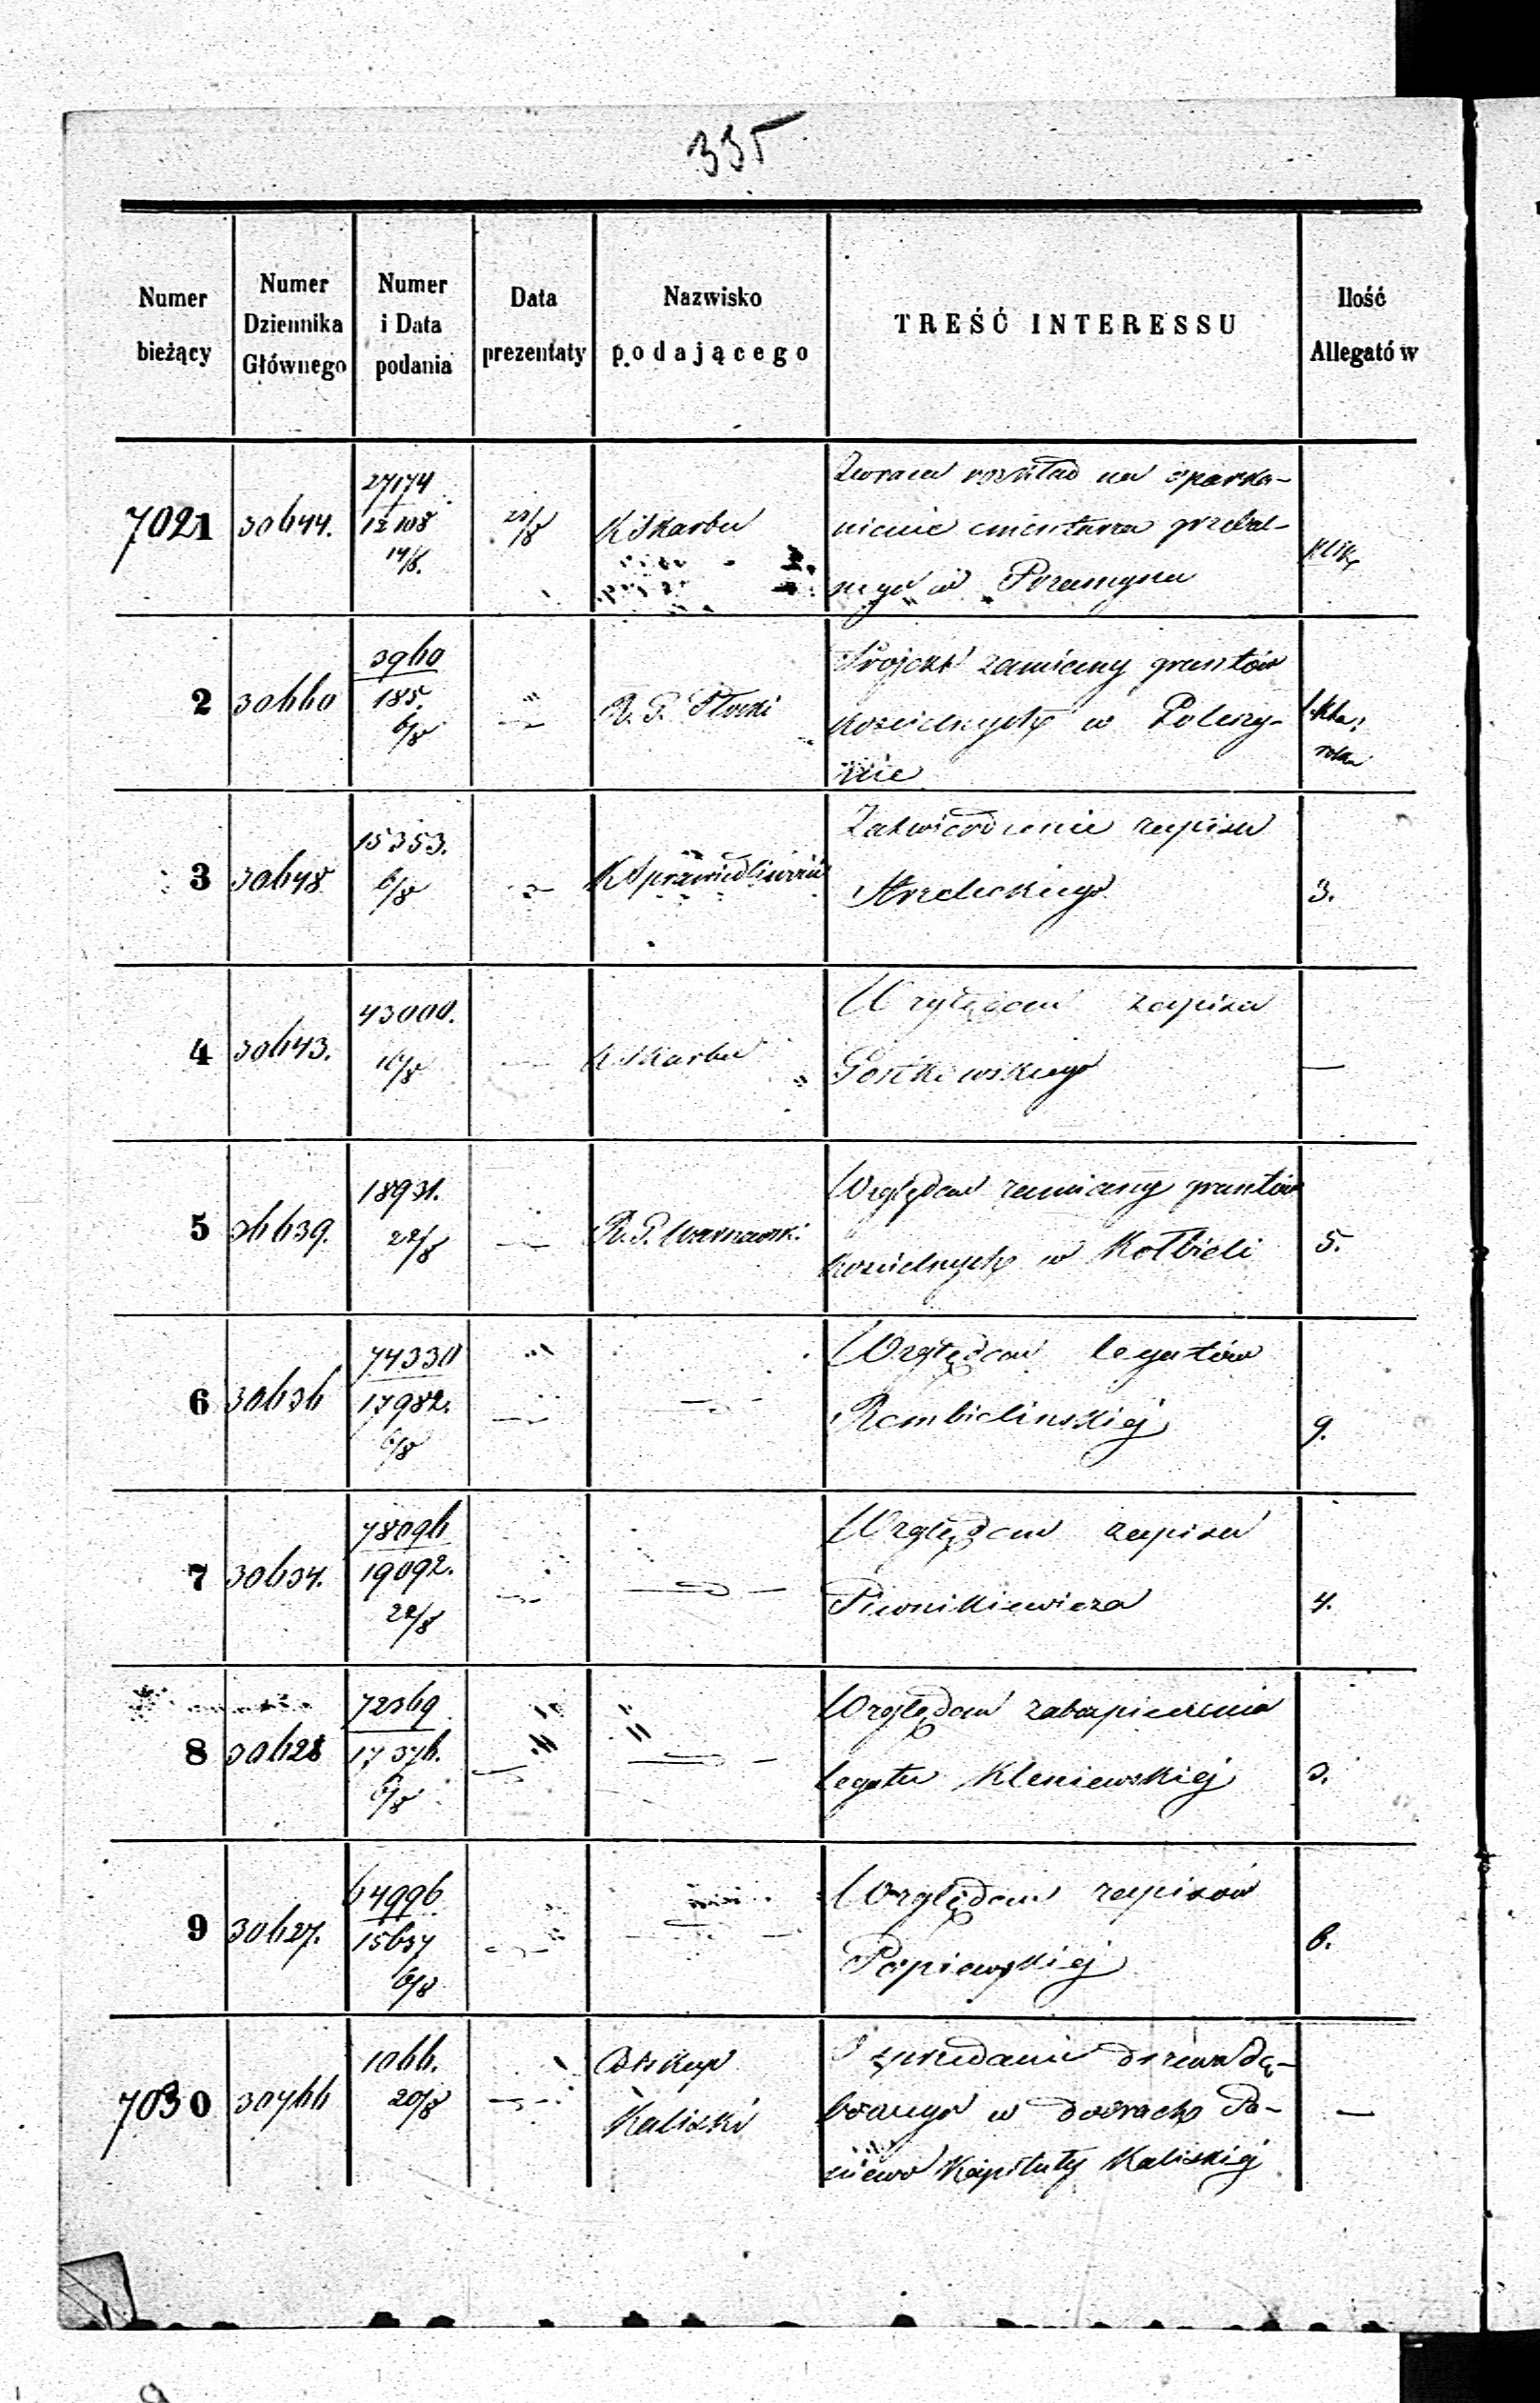 335
Numer bieżący
Numer Dziennika Głównego
Numer i Data podania
Data prezentaty
Nazwisko podającego
TREŚĆ INTERESSU
Ilość Allegatów
7021
30644.
27174
12108
14/8.
23/8
K Skarbu
Zwraca rozkład na oparka-
nienie cmentarza grzebal-
nego w Przemysu
2
30660
3960
185.
6/8
R. G. Płocki
Projekt zamiany gruntów
kościelnych w
nie
3
30648
15353.
6/8
K Sprawiedliwości
Zatwierdzenie zapisu
Strzeleckiego
3.
4
30643.
43000.
16/8
K Skarbu
Względem zapisu
Gostkowskiego
—
5
30639.
18931.
22/8
R. G. Warszawski.
Względem zamiany gruntów
kościelnych w Kołbieli
5.
6
30636
74330
17982.
6/8
Względem legatów
Rembielinskiej
9.
7
30634.
78096
19092.
22/8
Względem zapisu
Piwnikiewicza
4.
8
30628
72369
17376.
6/8
Względem zabezpieczenia
legatu Kleniewskiej
3.
9
30627.
64996
15637
6/8
Względem zapisów
6.
7030
30766
1066.
20/8
Biskup
Kaliski
O sprzedanie drzewa dę-
bowego w dobrach
Kapituły Kaliskiej
—